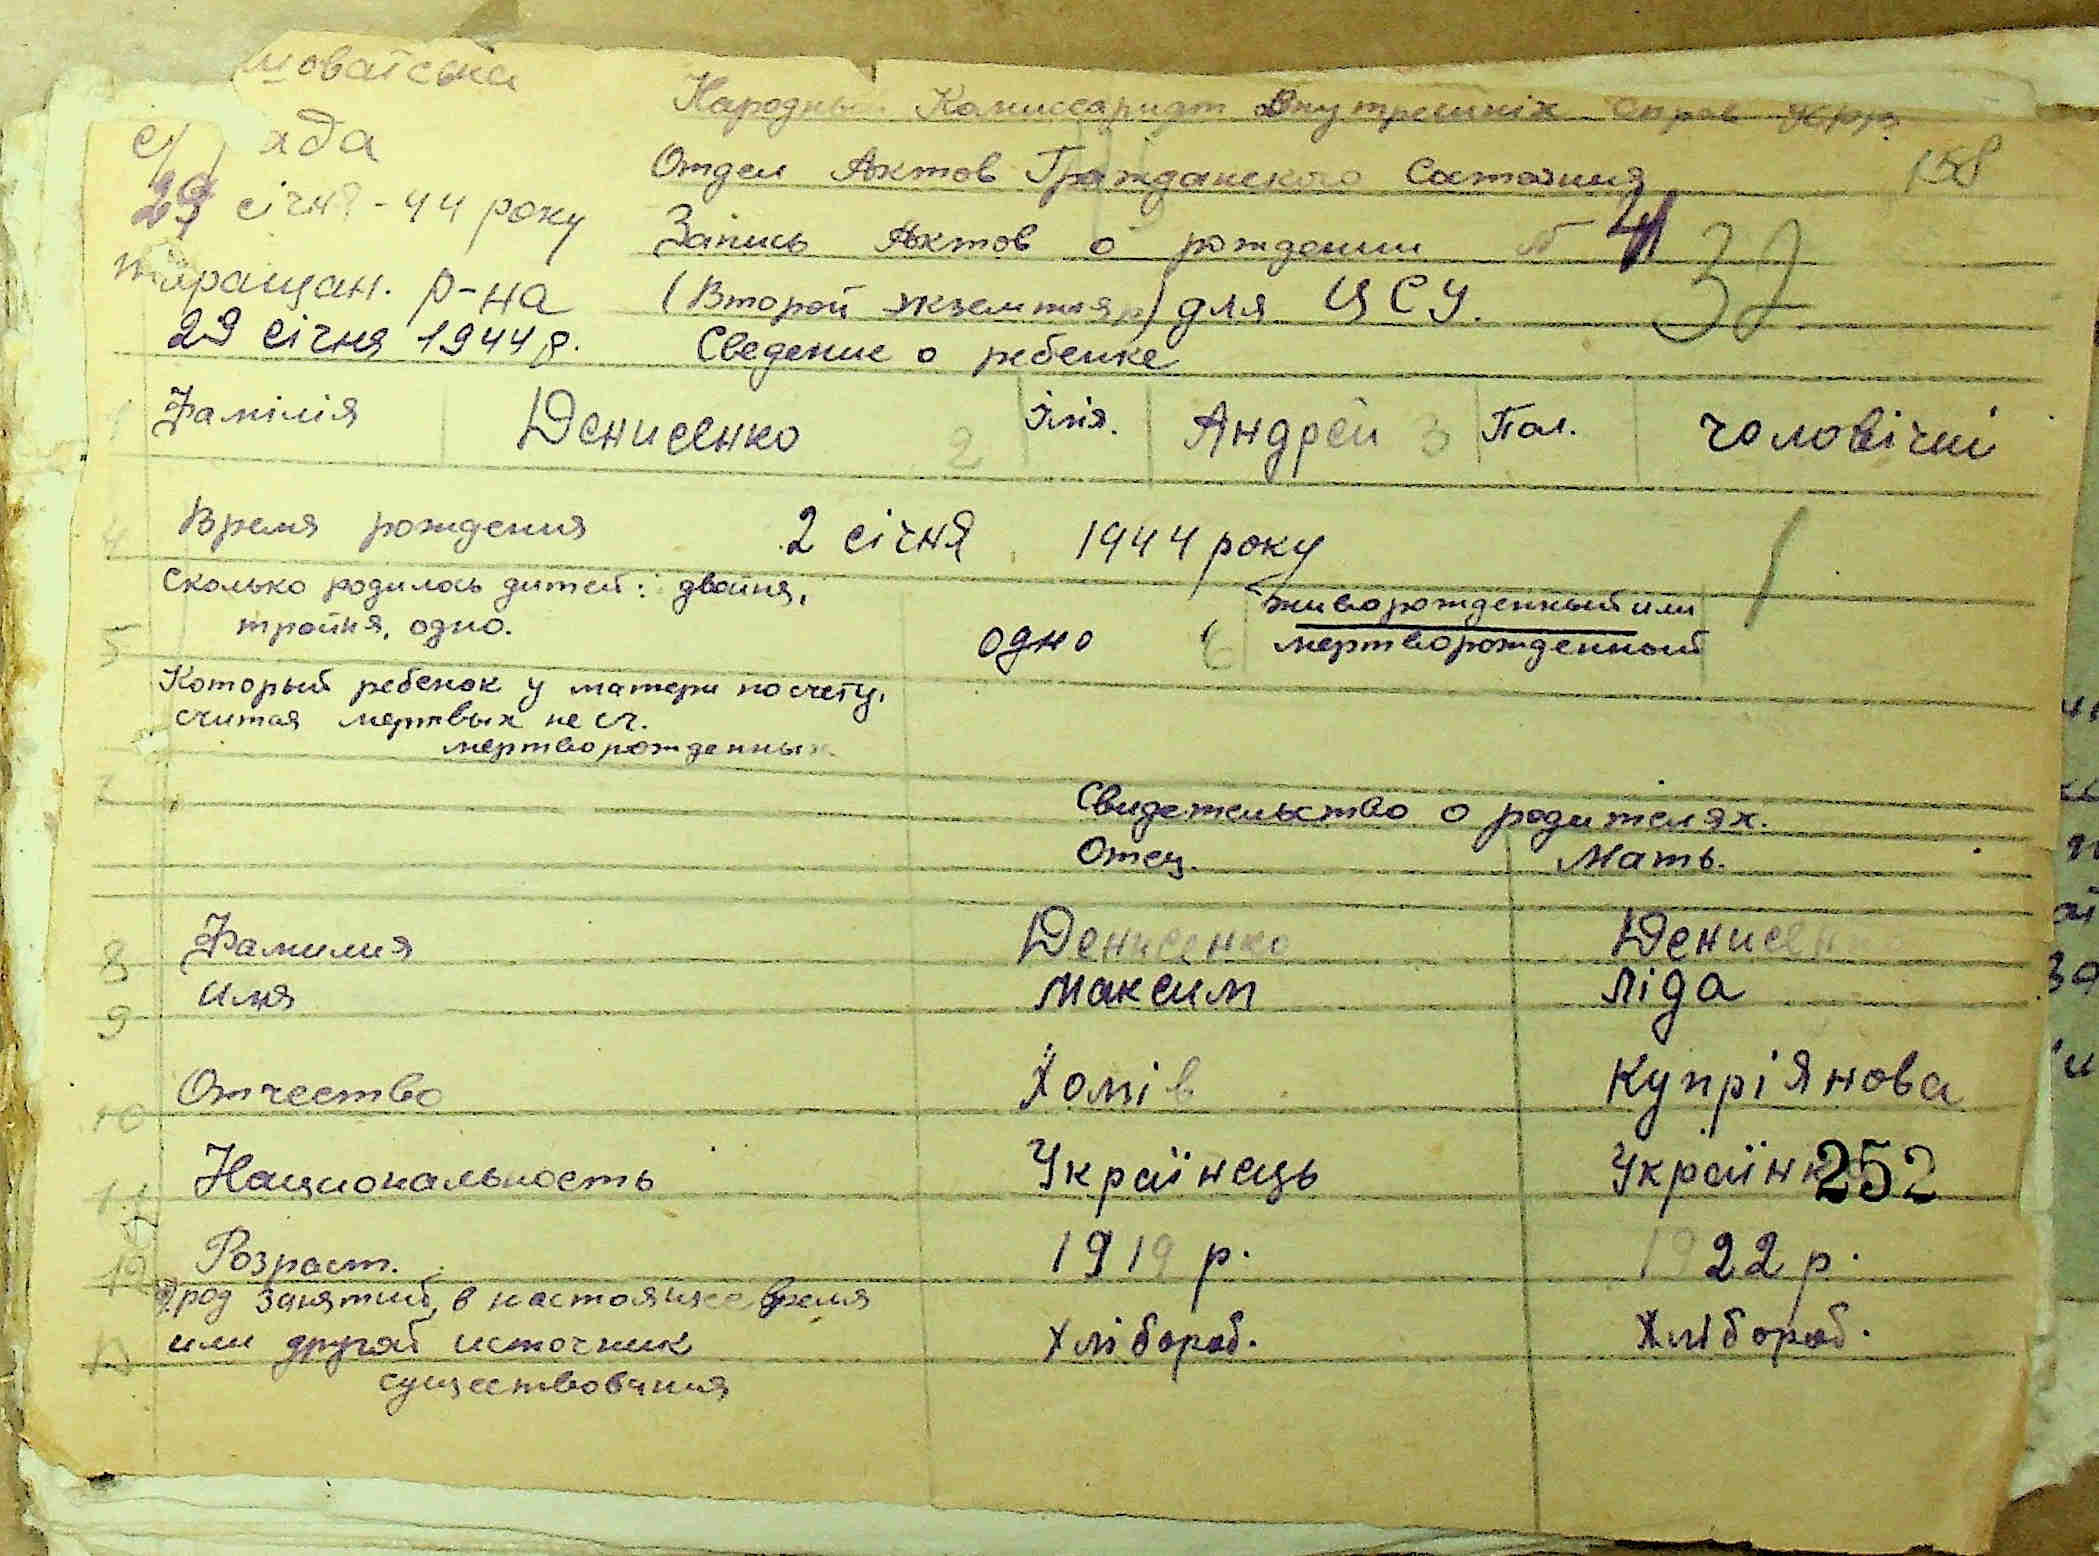 с/ рада
29 січня - 44 року
Таращан. р-на
29 січня 1944 р.
Народный Комиссариат Внутрешніх Справ
158
Отдел Актов Гражданского Состояния
Запись Актов о рождении № 41
37
(Второй экземпляр) для ЦСУ.
Сведение о ребенке
1 Фамілія Денисенко 2 Імя. Андрей 3 Пол. чоловічий
4 Время рождения 2 січня 1944 року
5 Сколько родилось дитей: двойня, тройня, одно. одно 6 живорожденный или мертворожденный
Который ребенок у матери по счету,
считая мертвых не сч.
мертворожденных
7
Свидетельство о родителях.
Отец. Мать.
8 Фамилия Денисенко Денисенко
9 имя Максим Ліда
10 Отчество Хомів Купріянова
11 Национальность Українець Українка
252
12 Розраст. 1919 р. 1922 р.
род занятий, в настоящее время
13 или другой источник Хлібороб. Хлібороб.
существования